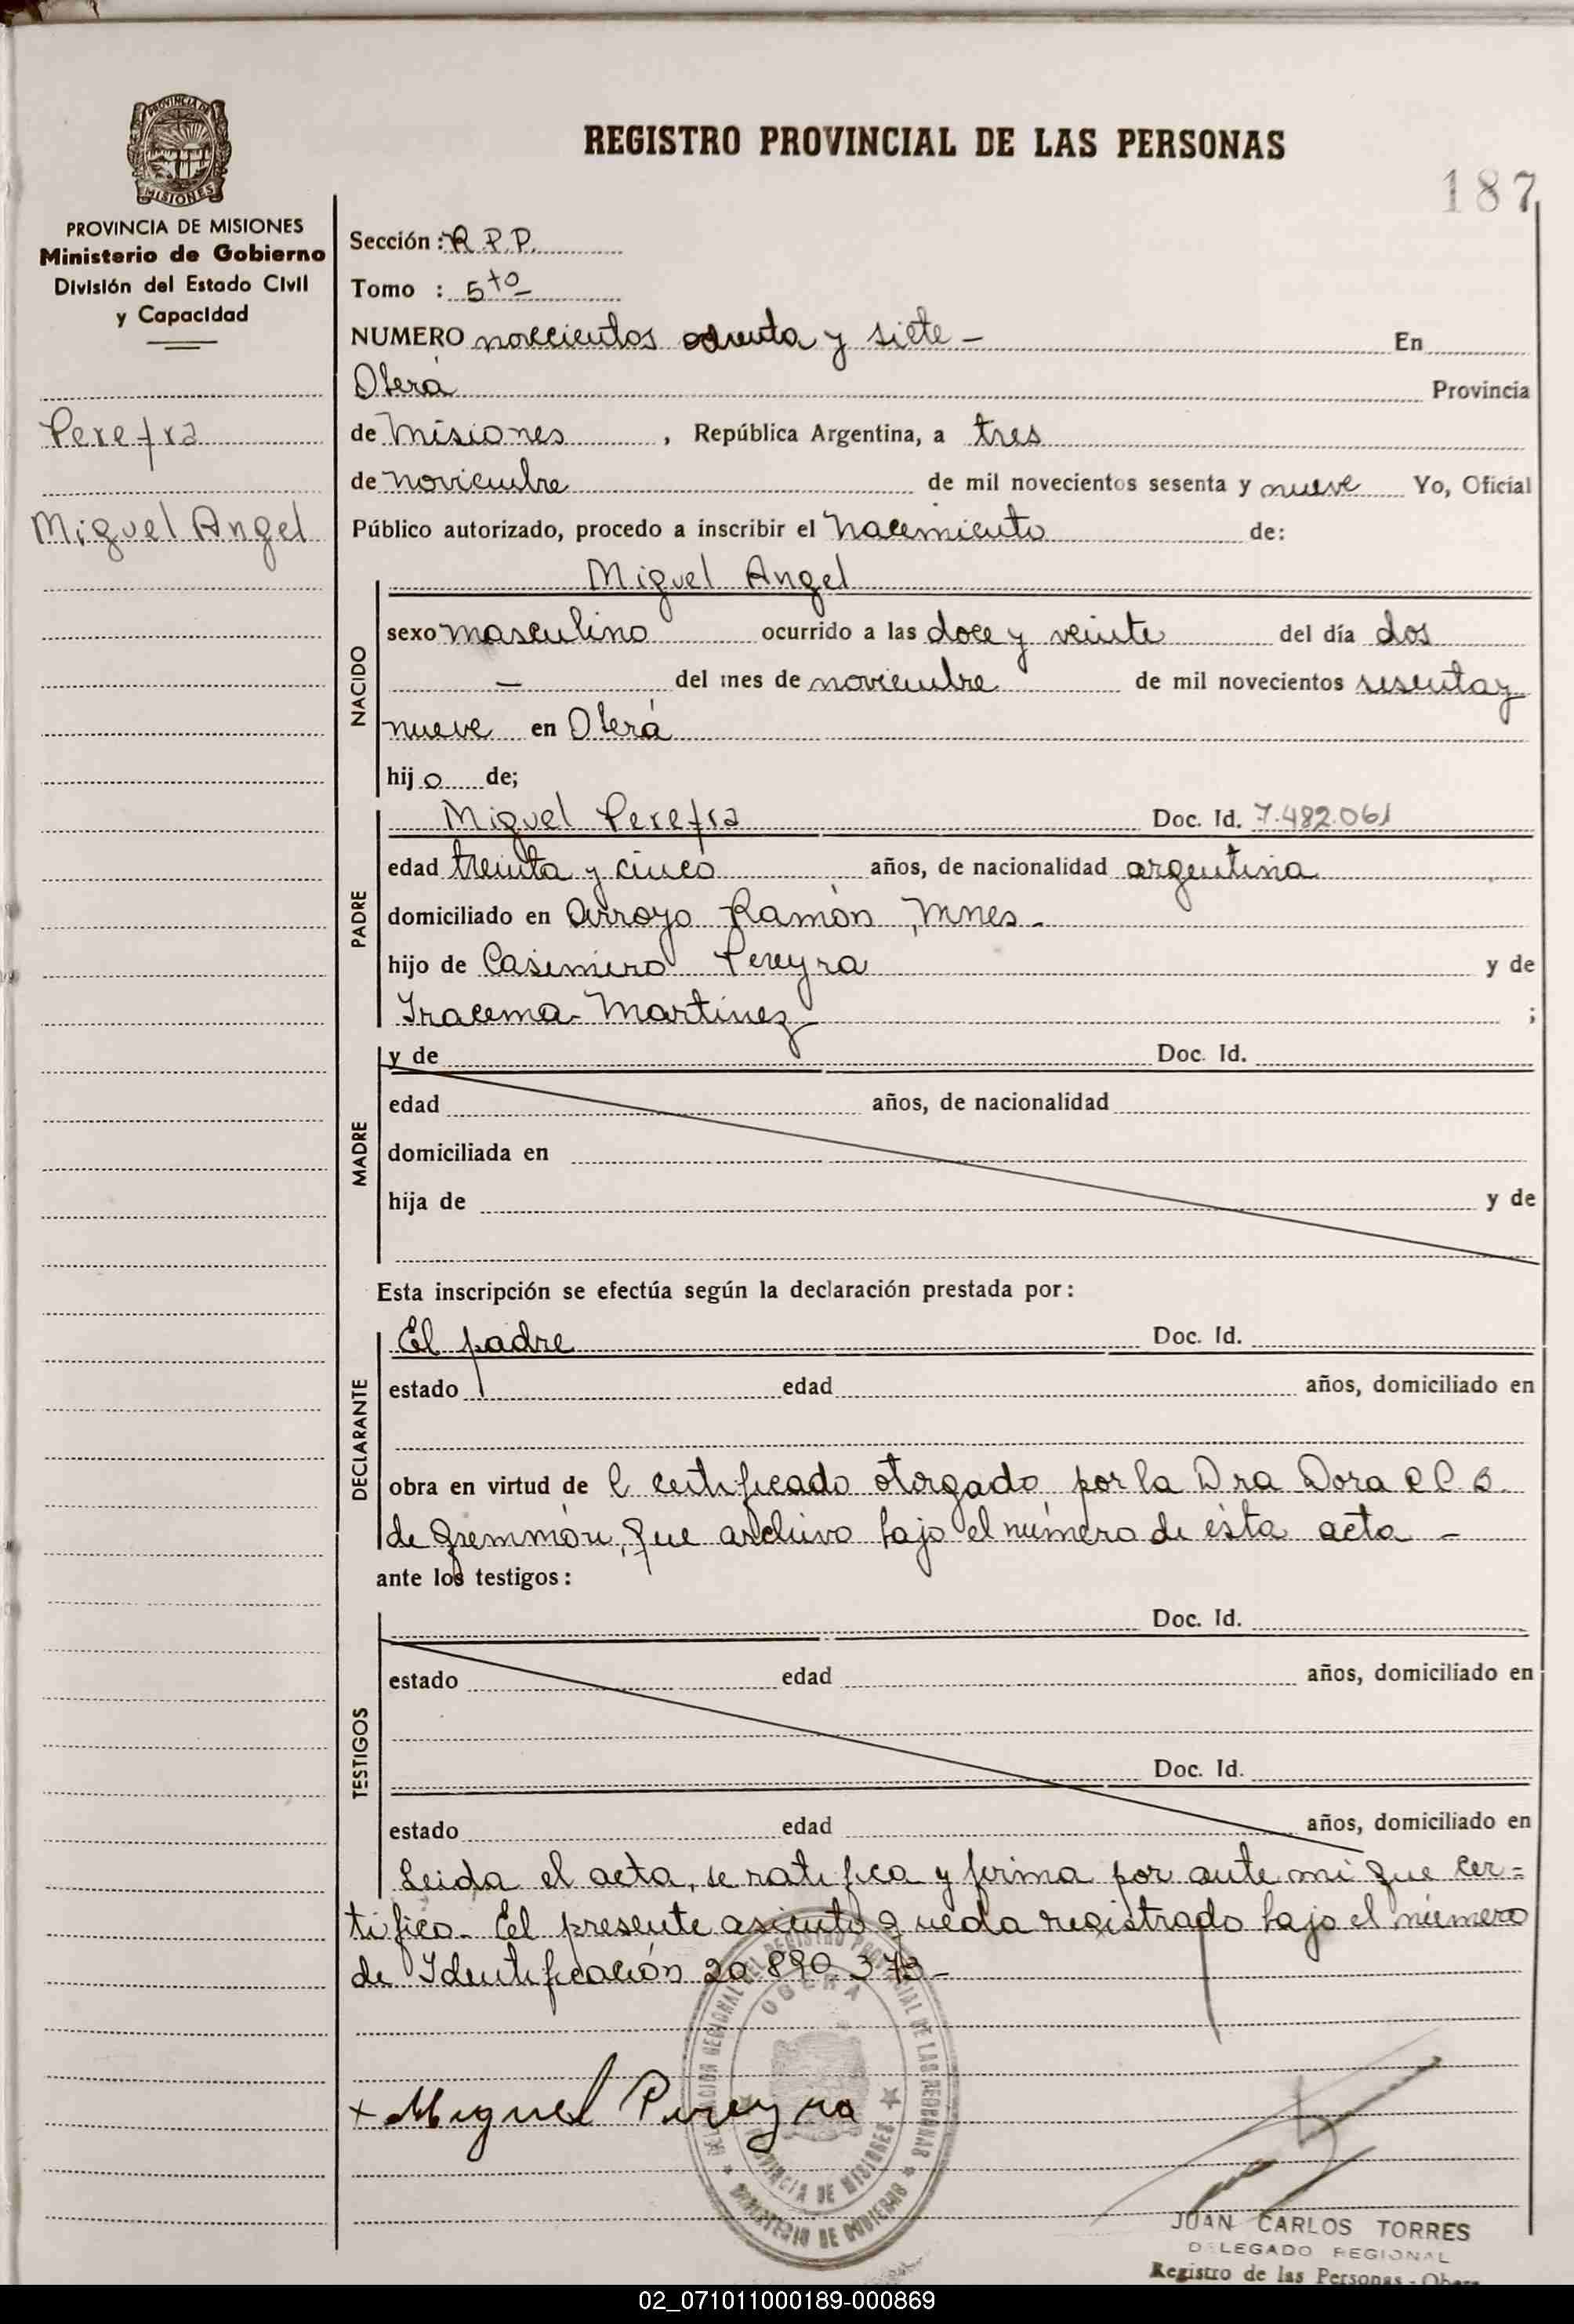 PROVINCIA DE
MISIONES
PROVINCIA DE MISIONES
Ministerio de Gobierno
División del Estado Civil
y Capacidad
Pereyra
Miguel Angel
REGISTRO PROVINCIAL DE LAS PERSONAS
187
Sección : R.P.P.
Tomo : 5to
NUMERO novecientos ochenta y siete - En
Oberá Provincia
de Misiones , República Argentina, a tres
de noviembre de mil novecientos sesenta y nueve Yo, Oficial
Público autorizado, procedo a inscribir el Nacimiento de:
Miguel Angel
NACIDO
sexo masculino ocurrido a las doce y veinte del día dos
- del mes de noviembre de mil novecientos sesenta y
nueve en Oberá
hijo de;
PADRE
Miguel Pereyra Doc. Id. 7.482.061
edad treinta y cinco años, de nacionalidad argentina
domiciliado en Arroyo Ramón, Mnes.
hijo de Casimiro Pereyra y de
Iracema Martinez ;
MADRE
y de Doc. Id.
edad años, de nacionalidad
domiciliada en
hija de y de
Esta inscripción se efectúa según la declaración prestada por:
DECLARANTE
El padre Doc. Id.
estado edad años, domiciliado en
obra en virtud de l certificado otorgado por la Dra Dora
de que archivo bajo el número de esta acta -
ante los testigos:
TESTIGOS
Doc. Id.
estado edad años, domiciliado en
Doc. Id.
estado edad años, domiciliado en
Leida el acta, se ratifica y firma por ante mi que cer=
tifico. El presente asiento queda registrado bajo el número
de Identificación 20.890.373-
DELEGACION REGIONAL DEL REGISTRO PROVINCIAL DE LAS PERSONAS
OBERA
PROVINCIA DE MISIONES
MINISTERIO DE GOBIERNO
+ Miguel Pereyra
JUAN CARLOS TORRES
DELEGADO REGIONAL
Registro de las Personas - Obera
02_071011000189-000869